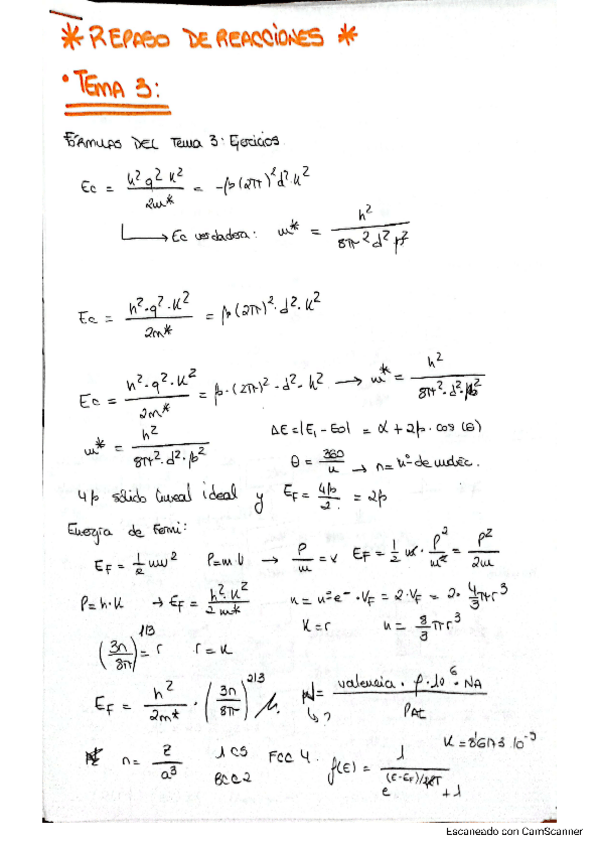 * REPASO DE REACCIONES *
• TEMA 3:
FÓRMULAS DEL Tema 3: Ejercicios
Ec = h²·q²·K² / 2m* = -β(2π)²d²·K²
↳ Ec verdadera: m* = h² / 8π²d²β²
Ec = h²·q²·K² / 2m* = β(2π)²·d²·K²
Ec = h²·q²·K² / 2m* = β·(2π)²·d²·k² → m* = h² / 8π²·d²·β²
m* = h² / 8π²·d²·β² ΔE=|E₁-E₀| = α+2β·cos(θ)
θ = 360/n → n=nº de moléc.
4β sólido lineal ideal y EF = 4β/2 = 2β
Energía de Fermi:
EF = 1/2 mv² P=m·v → P/m = v EF = 1/2 m·P²/m² = P²/2m
P=h·K → EF = h²·K² / 2m* n = nºe⁻·VF = 2·VF = 2·4/3πr³
K=r n = 8/3 πr³
(3n/8π)^1/3 = r r=K
EF = h²/2m* · (3n/8π)^2/3 N = valencia·ρ·10⁶·NA / PAt
↳ ?
n = Z/a³ 1 CS FCC 4. f(E) = 1 / e^(E-EF)/KT +1 K=8'6173·10⁻⁵
BCC 2
Escaneado con CamScanner